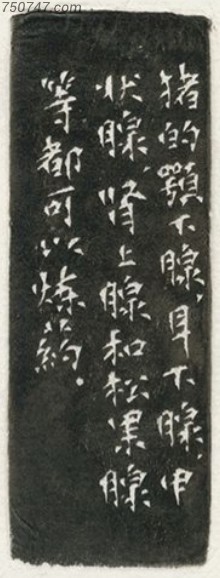 750747.com
猪的颚下腺,耳下腺,甲
状腺,肾上腺和松果腺
等都可以炼药。